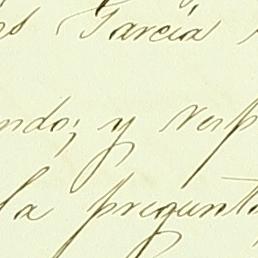 García
ndo; y resp
la pregunt